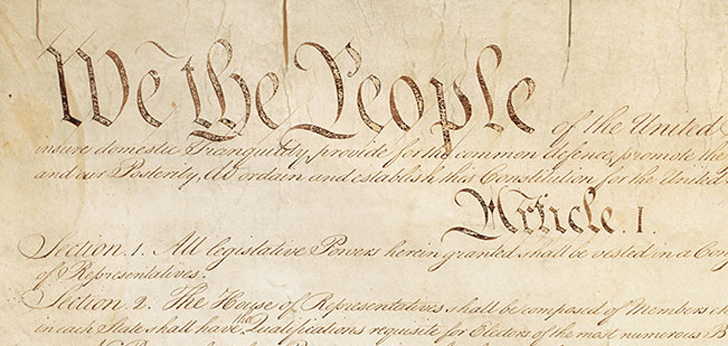 We the People of the United
insure domestic Tranquility, provide for the common defence, promote the
and our Posterity, do ordain and establish this Constitution for the United
Article. I.
Section. 1. All legislative Powers herein granted shall be vested in a Con
of Representatives.
Section. 2. The House of Representatives shall be composed of Members ch
in each State shall have the Qualifications requisite for Electors of the most numerous B
No Person shall